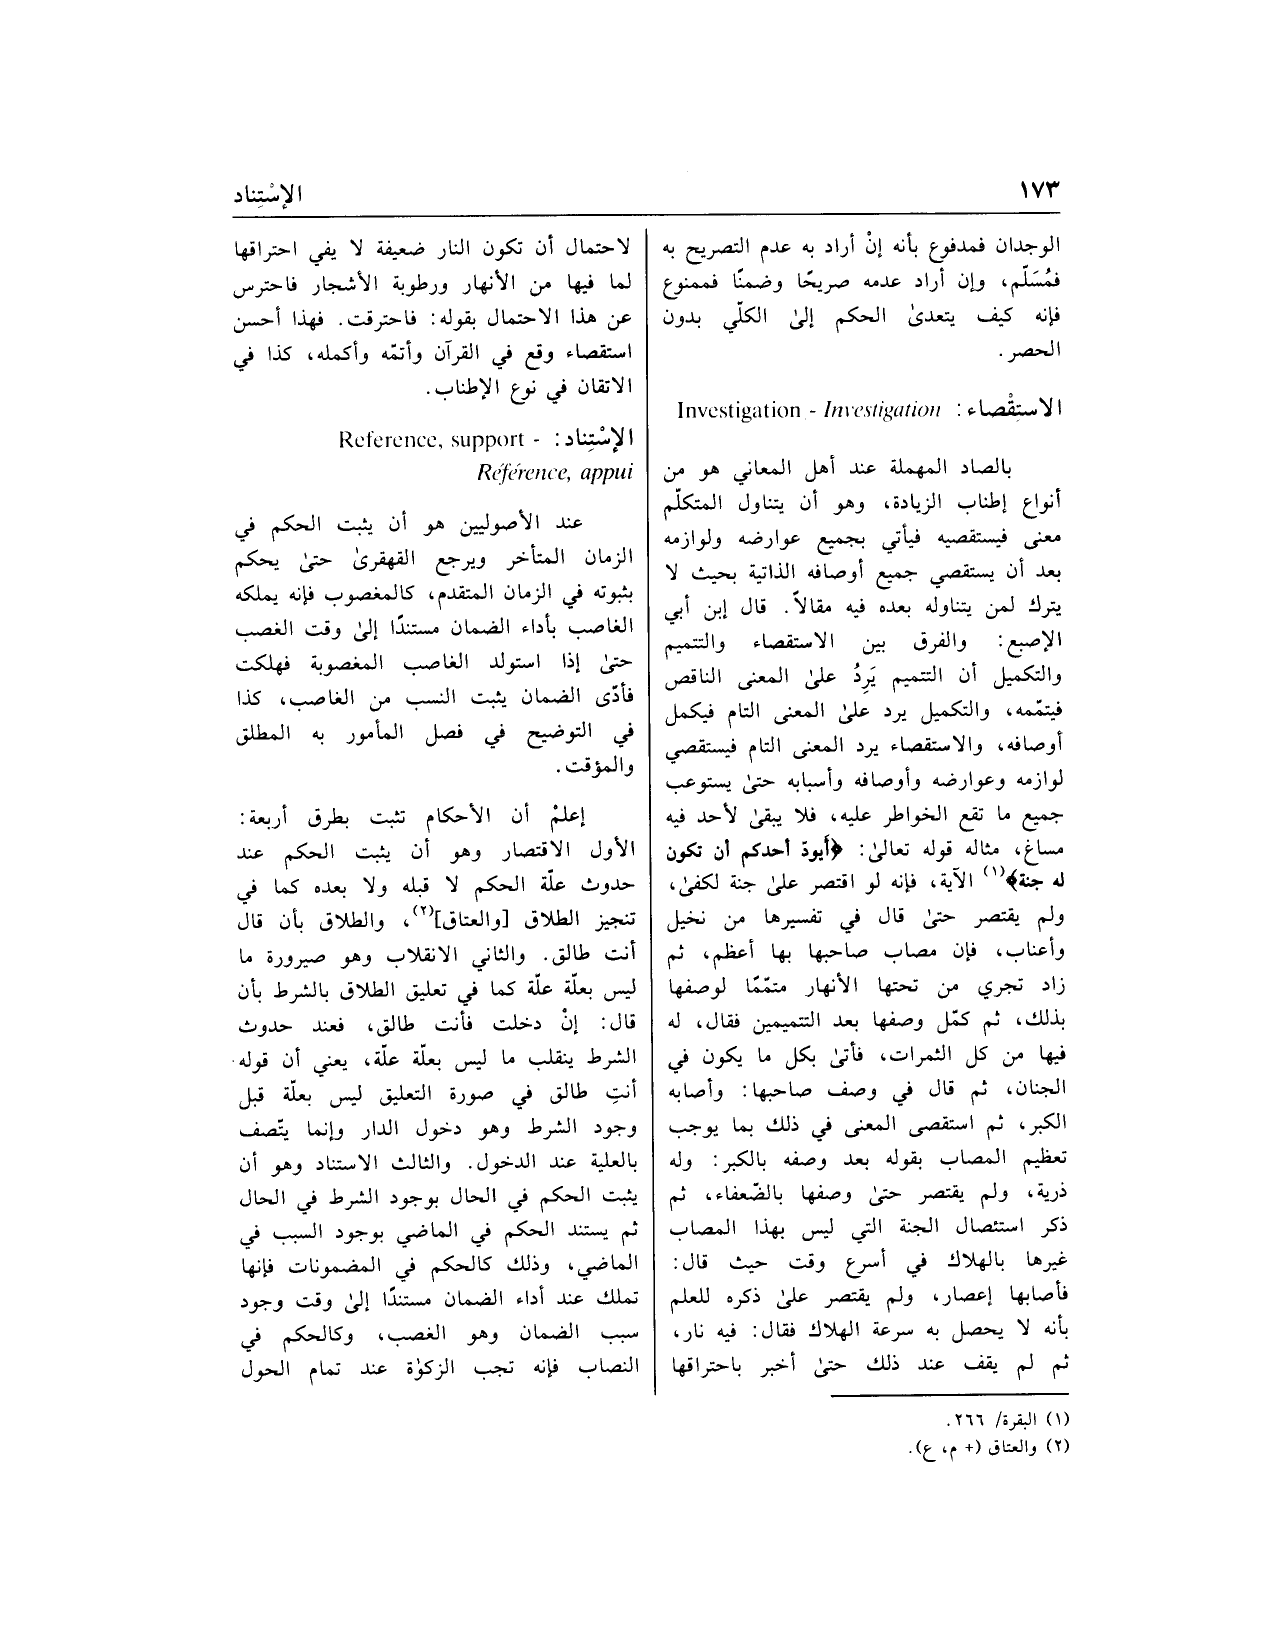 ١٧٣
الإسْتِناد
الوجدان فمدفوع بأنه إنْ أراد به عدم التصريح به
فمُسَلّم، وإن أراد عدمه صريحًا وضمنًا فممنوع
فإنه كيف يتعدىٰ الحكم إلىٰ الكلّي بدون
الحصر.
الاستِقْصاء: Investigation - Investigation
بالصاد المهملة عند أهل المعاني هو من
أنواع إطناب الزيادة، وهو أن يتناول المتكلّم
معنى فيستقصيه فيأتي بجميع عوارضه ولوازمه
بعد أن يستقصي جميع أوصافه الذاتية بحيث لا
يترك لمن يتناوله بعده فيه مقالاً. قال إبن أبي
الإصبع: والفرق بين الاستقصاء والتتميم
والتكميل أن التتميم يَرِدُ علىٰ المعنى الناقص
فيتمّمه، والتكميل يرد علىٰ المعنى التام فيكمل
أوصافه، والاستقصاء يرد المعنى التام فيستقصي
لوازمه وعوارضه وأوصافه وأسبابه حتىٰ يستوعب
جميع ما تقع الخواطر عليه، فلا يبقىٰ لأحد فيه
مساغ، مثاله قوله تعالىٰ: ﴿أيودّ أحدكم أن تكون
له جنة﴾(١) الآية، فإنه لو اقتصر علىٰ جنة لكفىٰ،
ولم يقتصر حتىٰ قال في تفسيرها من نخيل
وأعناب، فإن مصاب صاحبها بها أعظم، ثم
زاد تجري من تحتها الأنهار متمّمًا لوصفها
بذلك، ثم كمّل وصفها بعد التتميمين فقال، له
فيها من كل الثمرات، فأتىٰ بكل ما يكون في
الجنان، ثم قال في وصف صاحبها: وأصابه
الكبر، ثم استقصى المعنى في ذلك بما يوجب
تعظيم المصاب بقوله بعد وصفه بالكبر: وله
ذرية، ولم يقتصر حتىٰ وصفها بالضّعفاء، ثم
ذكر استئصال الجنة التي ليس بهذا المصاب
غيرها بالهلاك في أسرع وقت حيث قال:
فأصابها إعصار، ولم يقتصر علىٰ ذكره للعلم
بأنه لا يحصل به سرعة الهلاك فقال: فيه نار،
ثم لم يقف عند ذلك حتىٰ أخبر باحتراقها
لاحتمال أن تكون النار ضعيفة لا يفي احتراقها
لما فيها من الأنهار ورطوبة الأشجار فاحترس
عن هذا الاحتمال بقوله: فاحترقت. فهذا أحسن
استقصاء وقع في القرآن وأتمّه وأكمله، كذا في
الاتقان في نوع الإطناب.
الإسْتِناد: Reference, support -
Référence, appui
عند الأصوليين هو أن يثبت الحكم في
الزمان المتأخر ويرجع القهقرىٰ حتىٰ يحكم
بثبوته في الزمان المتقدم، كالمغصوب فإنه يملكه
الغاصب بأداء الضمان مستندًا إلىٰ وقت الغصب
حتىٰ إذا استولد الغاصب المغصوبة فهلكت
فأدّى الضمان يثبت النسب من الغاصب، كذا
في التوضيح في فصل المأمور به المطلق
والمؤقت.
إعلمْ أن الأحكام تثبت بطرق أربعة:
الأول الاقتصار وهو أن يثبت الحكم عند
حدوث علّة الحكم لا قبله ولا بعده كما في
تنجيز الطلاق [والعتاق](٢)، والطلاق بأن قال
أنت طالق. والثاني الانقلاب وهو صيرورة ما
ليس بعلّة علّة كما في تعليق الطلاق بالشرط بأن
قال: إنْ دخلت فأنت طالق، فعند حدوث
الشرط ينقلب ما ليس بعلّة علّة، يعني أن قوله
أنتِ طالق في صورة التعليق ليس بعلّة قبل
وجود الشرط وهو دخول الدار وإنما يتّصف
بالعلية عند الدخول. والثالث الاستناد وهو أن
يثبت الحكم في الحال بوجود الشرط في الحال
ثم يستند الحكم في الماضي بوجود السبب في
الماضي، وذلك كالحكم في المضمونات فإنها
تملك عند أداء الضمان مستندًا إلىٰ وقت وجود
سبب الضمان وهو الغصب، وكالحكم في
النصاب فإنه تجب الزكوٰة عند تمام الحول
(١) البقرة/ ٢٦٦.
(٢) والعتاق (+ م، ع).